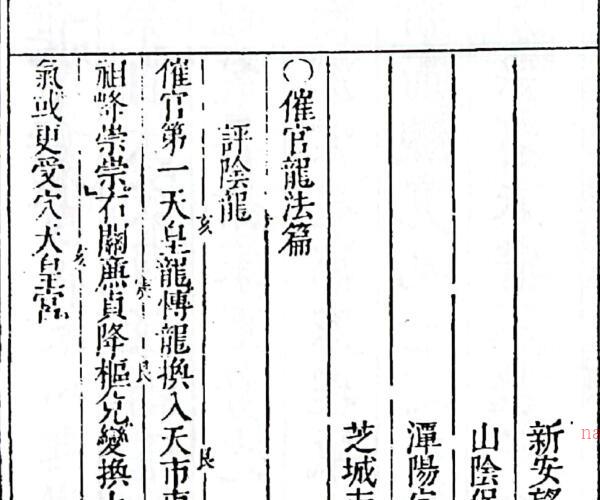 新安
山陰
潭陽
芝城
○催官龍法篇
評陰龍
催官第一天皇龍博龍換入天市東
亥 艮
祖峰崇崇右關廉貞降樞兌變換
艮
氣或更受穴天皇宮
亥
na